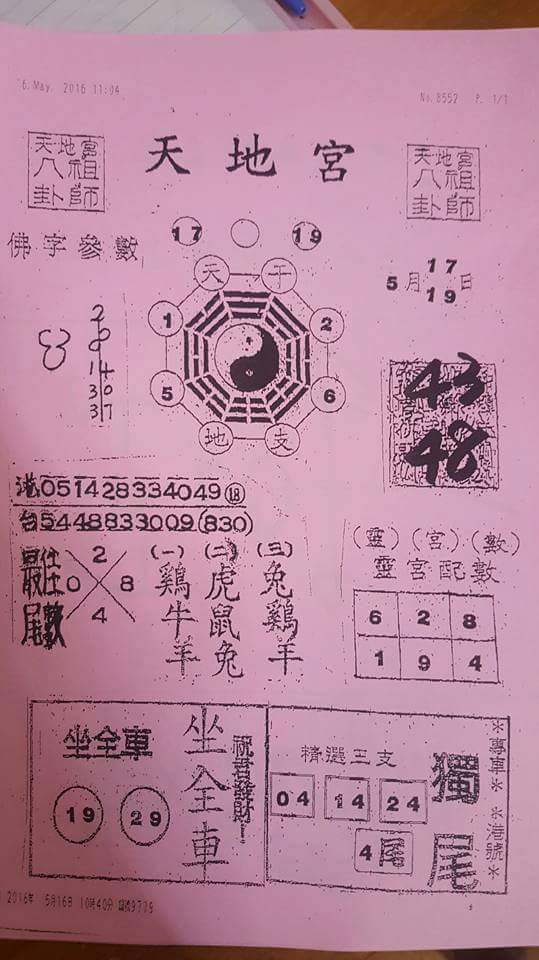 6. May. 2016 11:04
No. 8552 P. 1/1
天地宮
天地宮
八祖
卦師
天地宮
八祖
卦師
佛字參數
17 19
5月17日
19
天 干
1 2
5 6
地 支
14
30
37
43
48
港051428334049⑱
台5448833009(830)
最佳
尾數
2
0 8
4
(一) (二) (三)
鷄 虎 兔
牛 鼠 鷄
羊 兔 羊
(靈)(宮)(數)
靈宮配數
6 2 8
1 9 4
坐全車
19 29
坐全車
祝君發財!
精選三支
04 14 24
4尾
獨尾
*專車* *港號*
2016年 5月16日 10時40分